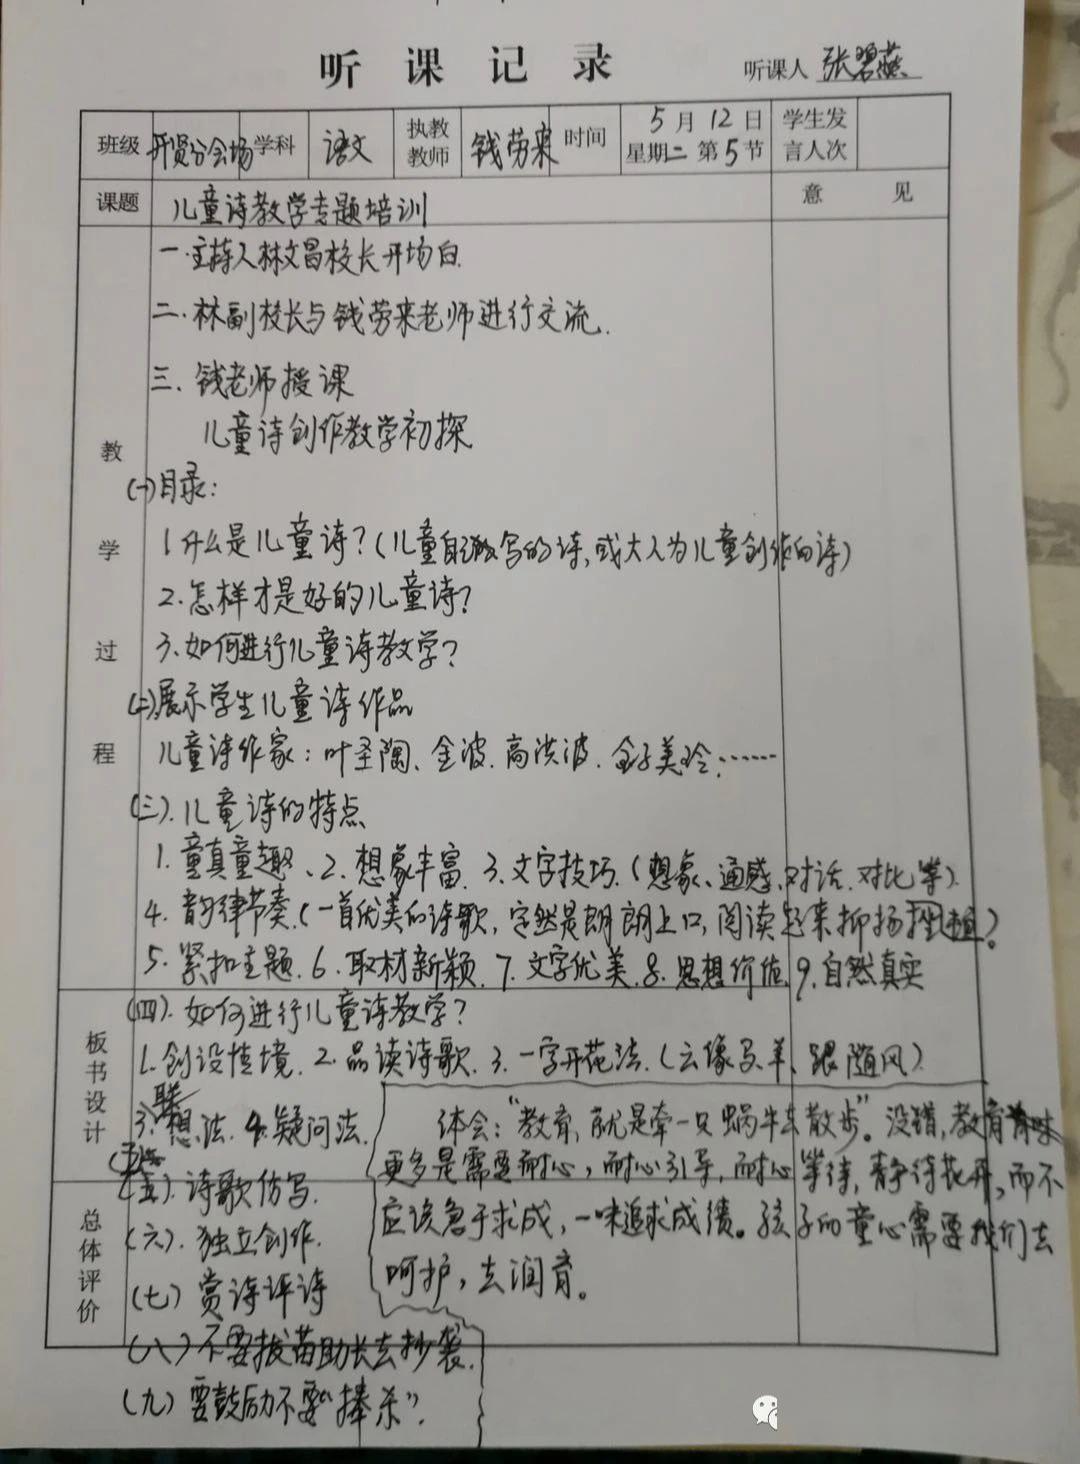 听课记录
听课人 张碧燕
班级 开贤分会场 学科 语文 执教教师 钱劳来 时间 5月12日 星期二 第5节 学生发言人次
课题 儿童诗教学专题培训 意见
教学过程
一.主持人林文昌校长开场白
二.林副校长与钱劳来老师进行交流.
三.钱老师授课
儿童诗创作教学初探
(一)目录:
1.什么是儿童诗?(儿童自己写的诗,或大人为儿童创作的诗)
2.怎样才是好的儿童诗?
3.如何进行儿童诗教学?
(二)展示学生儿童诗作品
儿童诗作家:叶圣陶、金波、高洪波、金子美玲……
(三).儿童诗的特点
1.童真童趣、2.想象丰富.3.文字技巧.(想象、通感、对话、对比等).
4.韵律节奏.(一首优美的诗歌,定然是朗朗上口,阅读起来抑扬
5.紧扣主题.6.取材新颖.7.文字优美.8.思想价值.9.自然真实
板书设计
(四).如何进行儿童诗教学?
1.创设情境.2.品读诗歌.3.一字开花法.(云像马、羊、跟随风)
3.联想法.4.疑问法.
体会:“教育,就是牵一只蜗牛去散步”。没错,教育
更多是需要耐心,耐心引导,耐心等待,静待花开,而不
应该急于求成,一味追求成绩。孩子的童心需要我们去
呵护,去润育。
总体评价
(五).诗歌仿写.
(六).独立创作.
(七)赏诗评诗
(八)不要拔苗助长去抄袭.
(九)要鼓励不要“捧杀”.